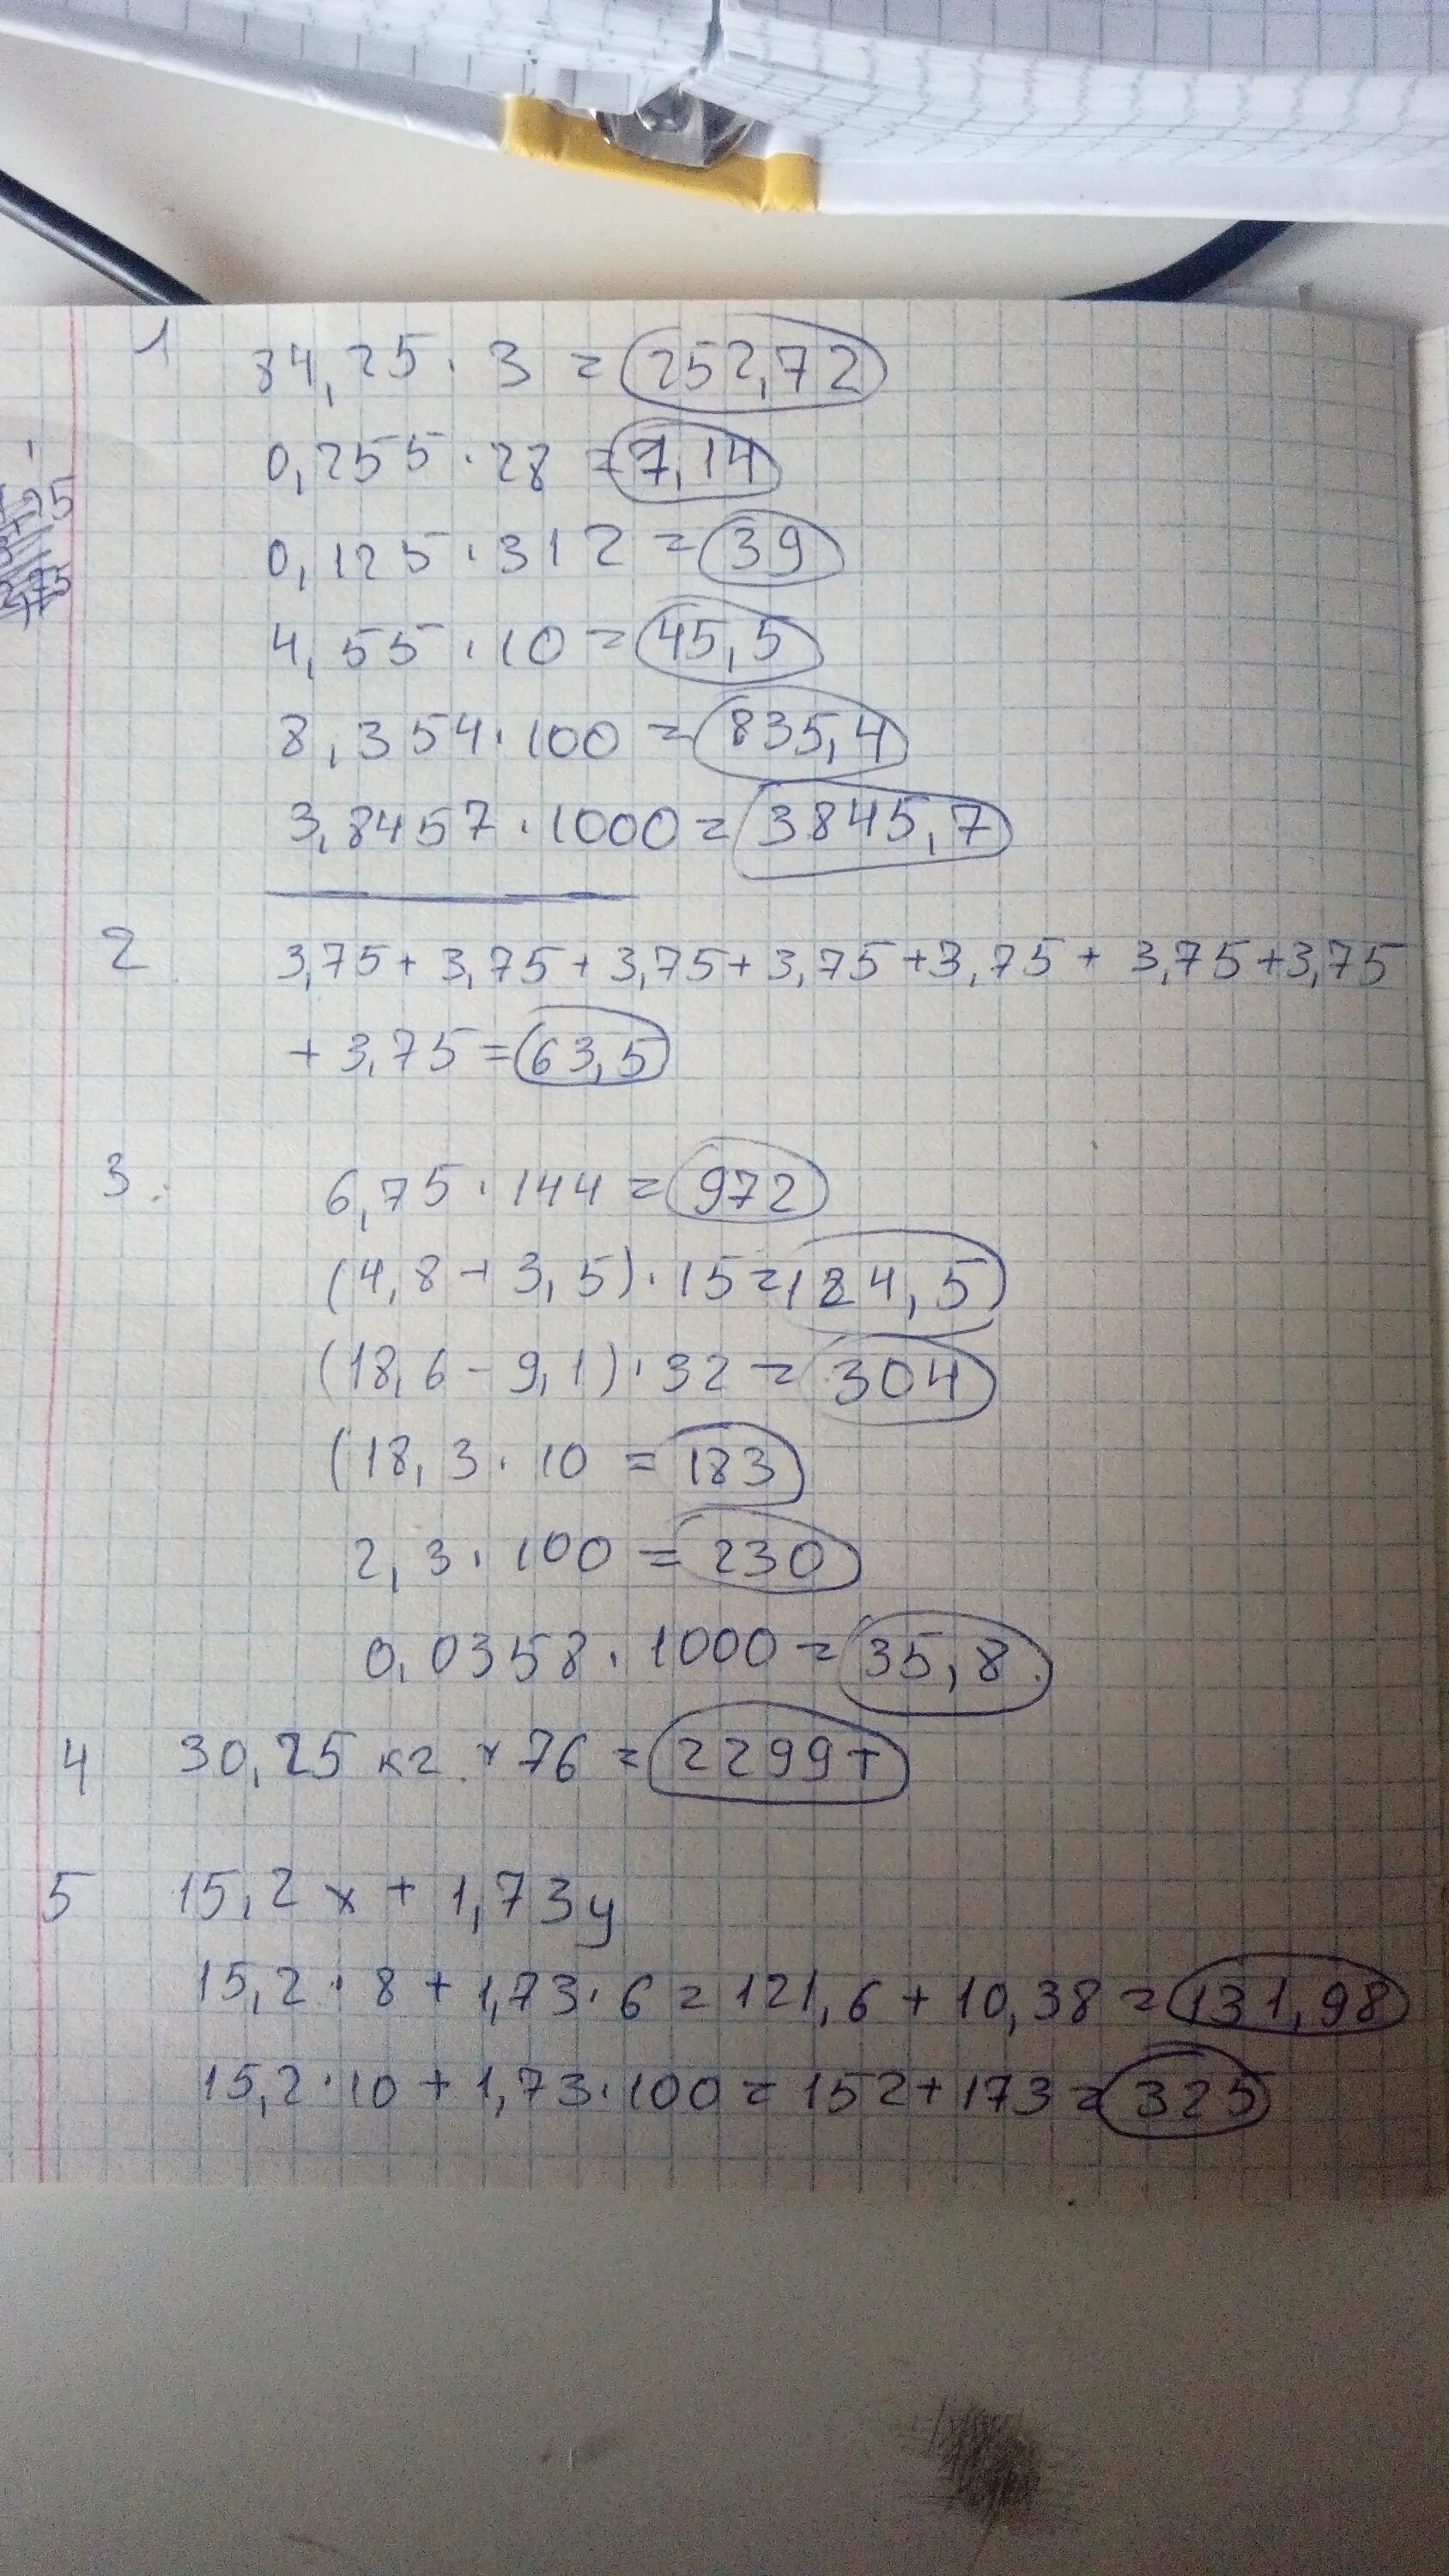 1 84,25 · 3 = 252,72
0,255 · 28 = 7,14
0,125 · 312 = 39
4,55 · 10 = 45,5
8,354 · 100 = 835,4
3,8457 · 1000 = 3845,7
2 3,75 + 3,75 + 3,75 + 3,75 + 3,75 + 3,75 + 3,75
+ 3,75 = 63,5
3. 6,75 · 144 = 972
(4,8 + 3,5) · 15 = 124,5
(18,6 - 9,1) · 32 = 304
(18,3 · 10 = 183
2,3 · 100 = 230
0,0358 · 1000 = 35,8
4 30,25 кг. × 76 = 2299 т
5 15,2 x + 1,73 y
15,2 · 8 + 1,73 · 6 = 121,6 + 10,38 = 131,98
15,2 · 10 + 1,73 · 100 = 152 + 173 = 325